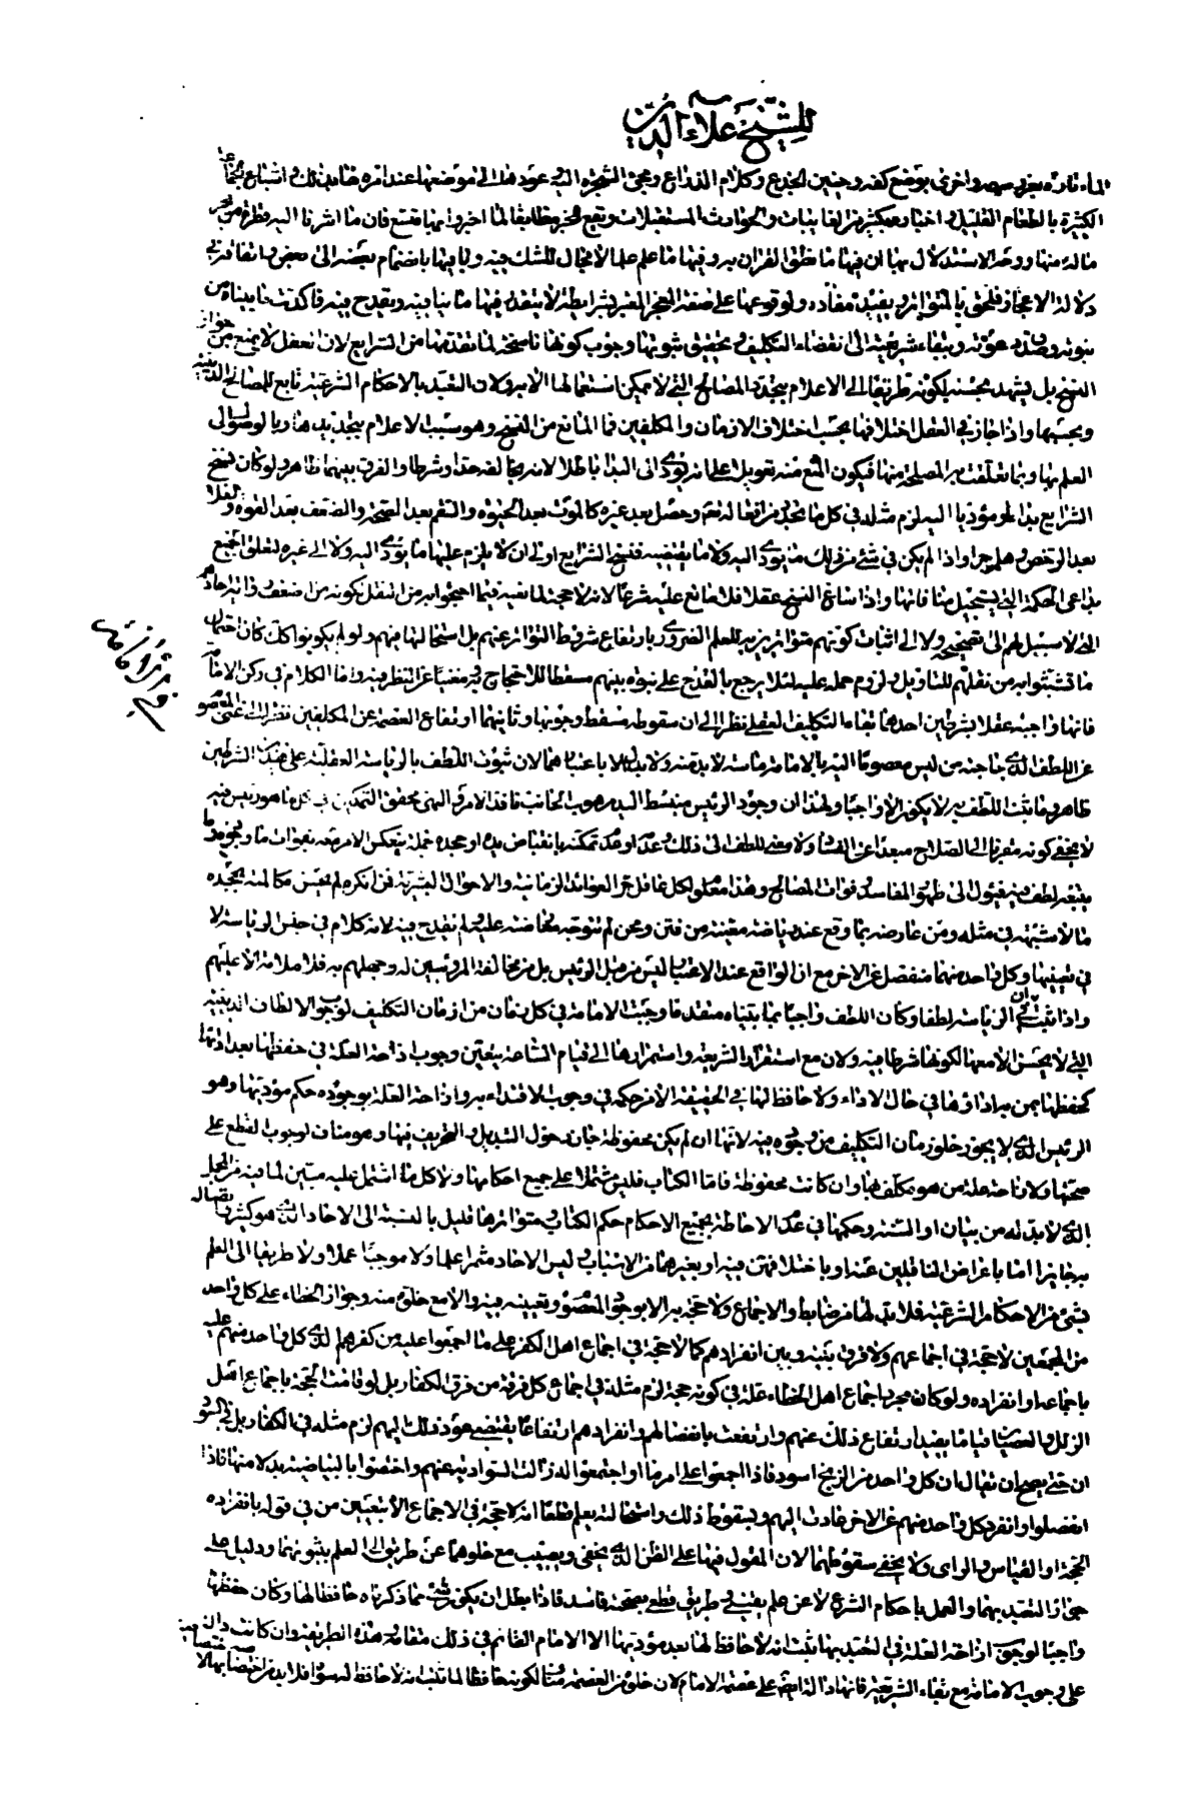 للشيخ علاء الدين
الماء تارة بغرز سهمه واخرى بوضع كفه وحنين الجذع وكلام الذراع ومجئ الشجرة اليه وعودها الى موضعها عند امره واشباع الجماعة
الكثيرة بالطعام القليل واخباره بكثير من الغايبات والحوادث المستقبلات وتقع مخبره مطابقا لما اخبر فان ما اشرنا اليه قطرة من بحر
ماله منها ووجه الاستدلال بها ان فيها ما نطق القران به وفيها ما علم علما لا مجال للشك فيه وباقيها بانضمام بعضه الى بعض
دلالة الاعجاز فلحق بالمتواتر ويفيد مفاده ولوقوعها على صفة المعجز المعتبر شرايطه لا يتقدر فيها ما ينافيه ويقدح فيه
نبوته وصدق دعوته وبقاء شريعته الى انقضاء التكليف وتحقيق ثبوتها وجوب كونها ناسخة لما تقدمها من الشرايع لان العقل لا يمنع من جواز
النسخ بل يشهد بحسنه لكونه طريقا الى الاعلام بتجدد المصالح التي لا يمكن استعلامها الا به ولان التعبد بالاحكام الشرعية تابع للمصالح الدينية
وبحسبها واذا جاز في العقل اختلافها بحسب اختلاف الازمان والمكلفين فما المانع من النسخ وهو سبب الاعلام بتجدد
العلم بها وبما تعلقت به المصلحة منها فيكون المنع منه تعويلا على انه يؤدي الى البداء باطلا لانه يخالفه حدا وشرطا والفرق بينهما ظاهر ولو كان نسخ
الشرايع بداء او مؤديا اليه لزم مثله في كل ما يتجدد من افعاله تعالى وحصل بعد غيره كالموت بعد الحيوة والسقم بعد الصحة والضعف بعد القوة والغلاء
بعد الرخص وهلم جرا واذا لم يكن في شئ من ذلك ما يؤدي اليه ولا ما يقتضيه فنسخ الشرايع اولى ان لا يلزم عليها ما يؤدي اليه ولا الى غيره لتعلق الجميع
بداعي الحكمة التي يستحيل منافاتها واذا ساغ النسخ عقلا فلا مانع عليه شرعا لانه لا حجة لمانعيه فيما احتجوا به من النقل لكونه من اضعف
التي لا سبيل لهم الى تصحيحه ولا الى اثبات كونهم متواترين به للعلم الضروري بارتفاع شروط التواتر عنهم بل استحالتها فيهم ولو لم يكونوا كذلك كان احتمال
ما تشبثوا به من نقلهم للتاويل ولزوم حمله عليه لئلا يرجع بالقدح على نبوة نبيهم مسقطا للاحتجاج به مغنيا عن النظر فيه واما الكلام في ركن الامامة
فانها واجبة عقلا بشرطين احدهما بقاء التكليف العقلي نظرا الى ان سقوطه مسقط وجوبها وثانيهما ارتفاع العصمة عن المكلفين نظرا الى غنى المعصوم
عن اللطف الذي يحتاجه من ليس معصوما اليه بالامامة ولا بد من اعتبارهما لان ثبوت اللطف بالرياسة العقلية على هذين الشرطين
ظاهر وما ثبت اللطف به لا يكون الا واجبا ولهذا ان وجود الرئيس منبسط اليد مرهوب الجانب نافذ الامر والنهي محقق التمكين في كل ما هو رئيس فيه
لا يخفى كونه مقربا الى الصلاح مبعدا عن الفساد ولا معنى للطف الا ذلك وعدمه او عدم تمكنه بانقباض يده
يتبعه لطف فيه فيؤل الى ظهور المفاسد وفوات المصالح وهذا معلوم لكل عاقل عرف العوائد الزمانية والاحوال البشرية فمن انكره لم يحسن مكالمته لجحده
ما لا مشتبه في مثله ومن عارضه بما وقع عند رياسة معينة من فتن ومحن لم تتوجه مخاصمته عليه ولم يقدح فيه لانه كلام في جنس الرياسة لا
في تعيينها وكل واحد منهما منفصل عن الاخر مع ان الواقع عند الاعتبار ليس من قبل الرئيس بل من مخالفة المرؤسين له وجهلهم به فلا ملامة الا عليهم
واذا ثبت ان الرياسة لطفا وكان اللطف واجبا بما بيناه متقدما وجبت الامامة في كل زمان من ازمان التكليف لوجوب الالطاف الدينية
التي لا يحسن الا معها لكونها شرطا فيه ولان مع استقرار الشريعة واستمرارها الى قيام الساعة يتعين وجوب ازاحة العلة في حفظها بعد ادائها
كحفظها بمن به اداؤها في حال الاداء ولا حافظ لها في الحقيقة الا من حكمه في وجوب الاقتداء به وازاحة العلة بوجوده حكم مؤديها وهو
الرئيس الذي لا يجوز خلو زمان التكليف من وجوده فيه لانها ان لم يكن محفوظة جاز دخول التبديل والتحريف فيها وهو مناف لوجوب القطع على
صحتها ولازاحة علة من هو مكلف بها وان كانت محفوظة فاما الكتاب فليس مشتملا على جميع احكامها ولا كل ما اشتمل عليه مبين لما فيه من المجمل
الذي لابد له من بيان او السنة وحكمها في عدم الاحاطة بجميع الاحكام حكم الكتاب ومتواترها قليل بالنسبة الى الاحاد الذي هو كثيرها
اما باعراض الناقلين عنه او باختلافهم فيه او بغيرهما من الاسباب وليس الاحاد مثمرا علما ولا موجبا عملا ولا طريقا الى العلم
بشئ من الاحكام الشرعية فلابد لها من ضابط والاجماع ولا حجة به الا بوجود المعصوم وتعيينه فيه والا مع خلوه منه وجواز الخطاء على كل واحد
من المجمعين لا حجة في اجماعهم ولا فرق بينه وبين انفرادهم كما لا حجة في اجماع اهل الكفر على ما اجمعوا عليه من كفرهم الذي كل واحد منهم عليه
باجتماعه وانفراده ولو كان مجرد اجماع اهل الخطاء علة في كونه حجة لزم مثله في اجماع كل فرقة من فرق الكفار بل لو قامت الحجة باجماع اهل
الزلل والعصيان قياما يفيد ارتفاع ذلك عنهم وارتفعت بانفصالهم وانفرادهم ارتفاعا يقتضي عود ذلك اليهم لزم مثله في الكفار بل في السود
ان حتى يصح ان يقال ان كل واحد من الزنج اسود فاذا اجمعوا على امر ما او اجتمعوا له زالت السوادية عنهم واختصوا بالبياضية بدلا منها فاذا
انفصلوا وانفرد كل واحد منهم عن الاخر عادت اليهم وبسقوط ذلك واستحالته يعلم قطعا انه لا حجة في الاجماع الا بتعيين من في قوله بانفراده
الحجة او القياس والراى ولا يخفى سقوطهما لان المعول فيهما على الظن الذي يخطى ويصيب مع خلوهما عن طريق الى العلم بثبوتهما ودليل على
جواز التعبد بهما والعمل باحكام الشرع لا عن علم يقيني وطريق قطعي بصحته فاسد فاذا بطل ان يكون شئ مما ذكرناه حافظا لها وكان حفظها
واجبا لوجوب ازاحة العلة في التعبد بها ثبت انه لا حافظ لها بعد مؤديها الا الامام القائم في ذلك مقامه وهذه الطريقة وان كانت دالة
على وجوب الامامة مع بقاء الشريعة فانها دالة ايضا على عصمة الامام لان خلوه من العصمة مناف لكونه حافظا لما ثبت انه لا حافظ له سواه فلابد من اختصاصه بها والا
في ركن الامامة